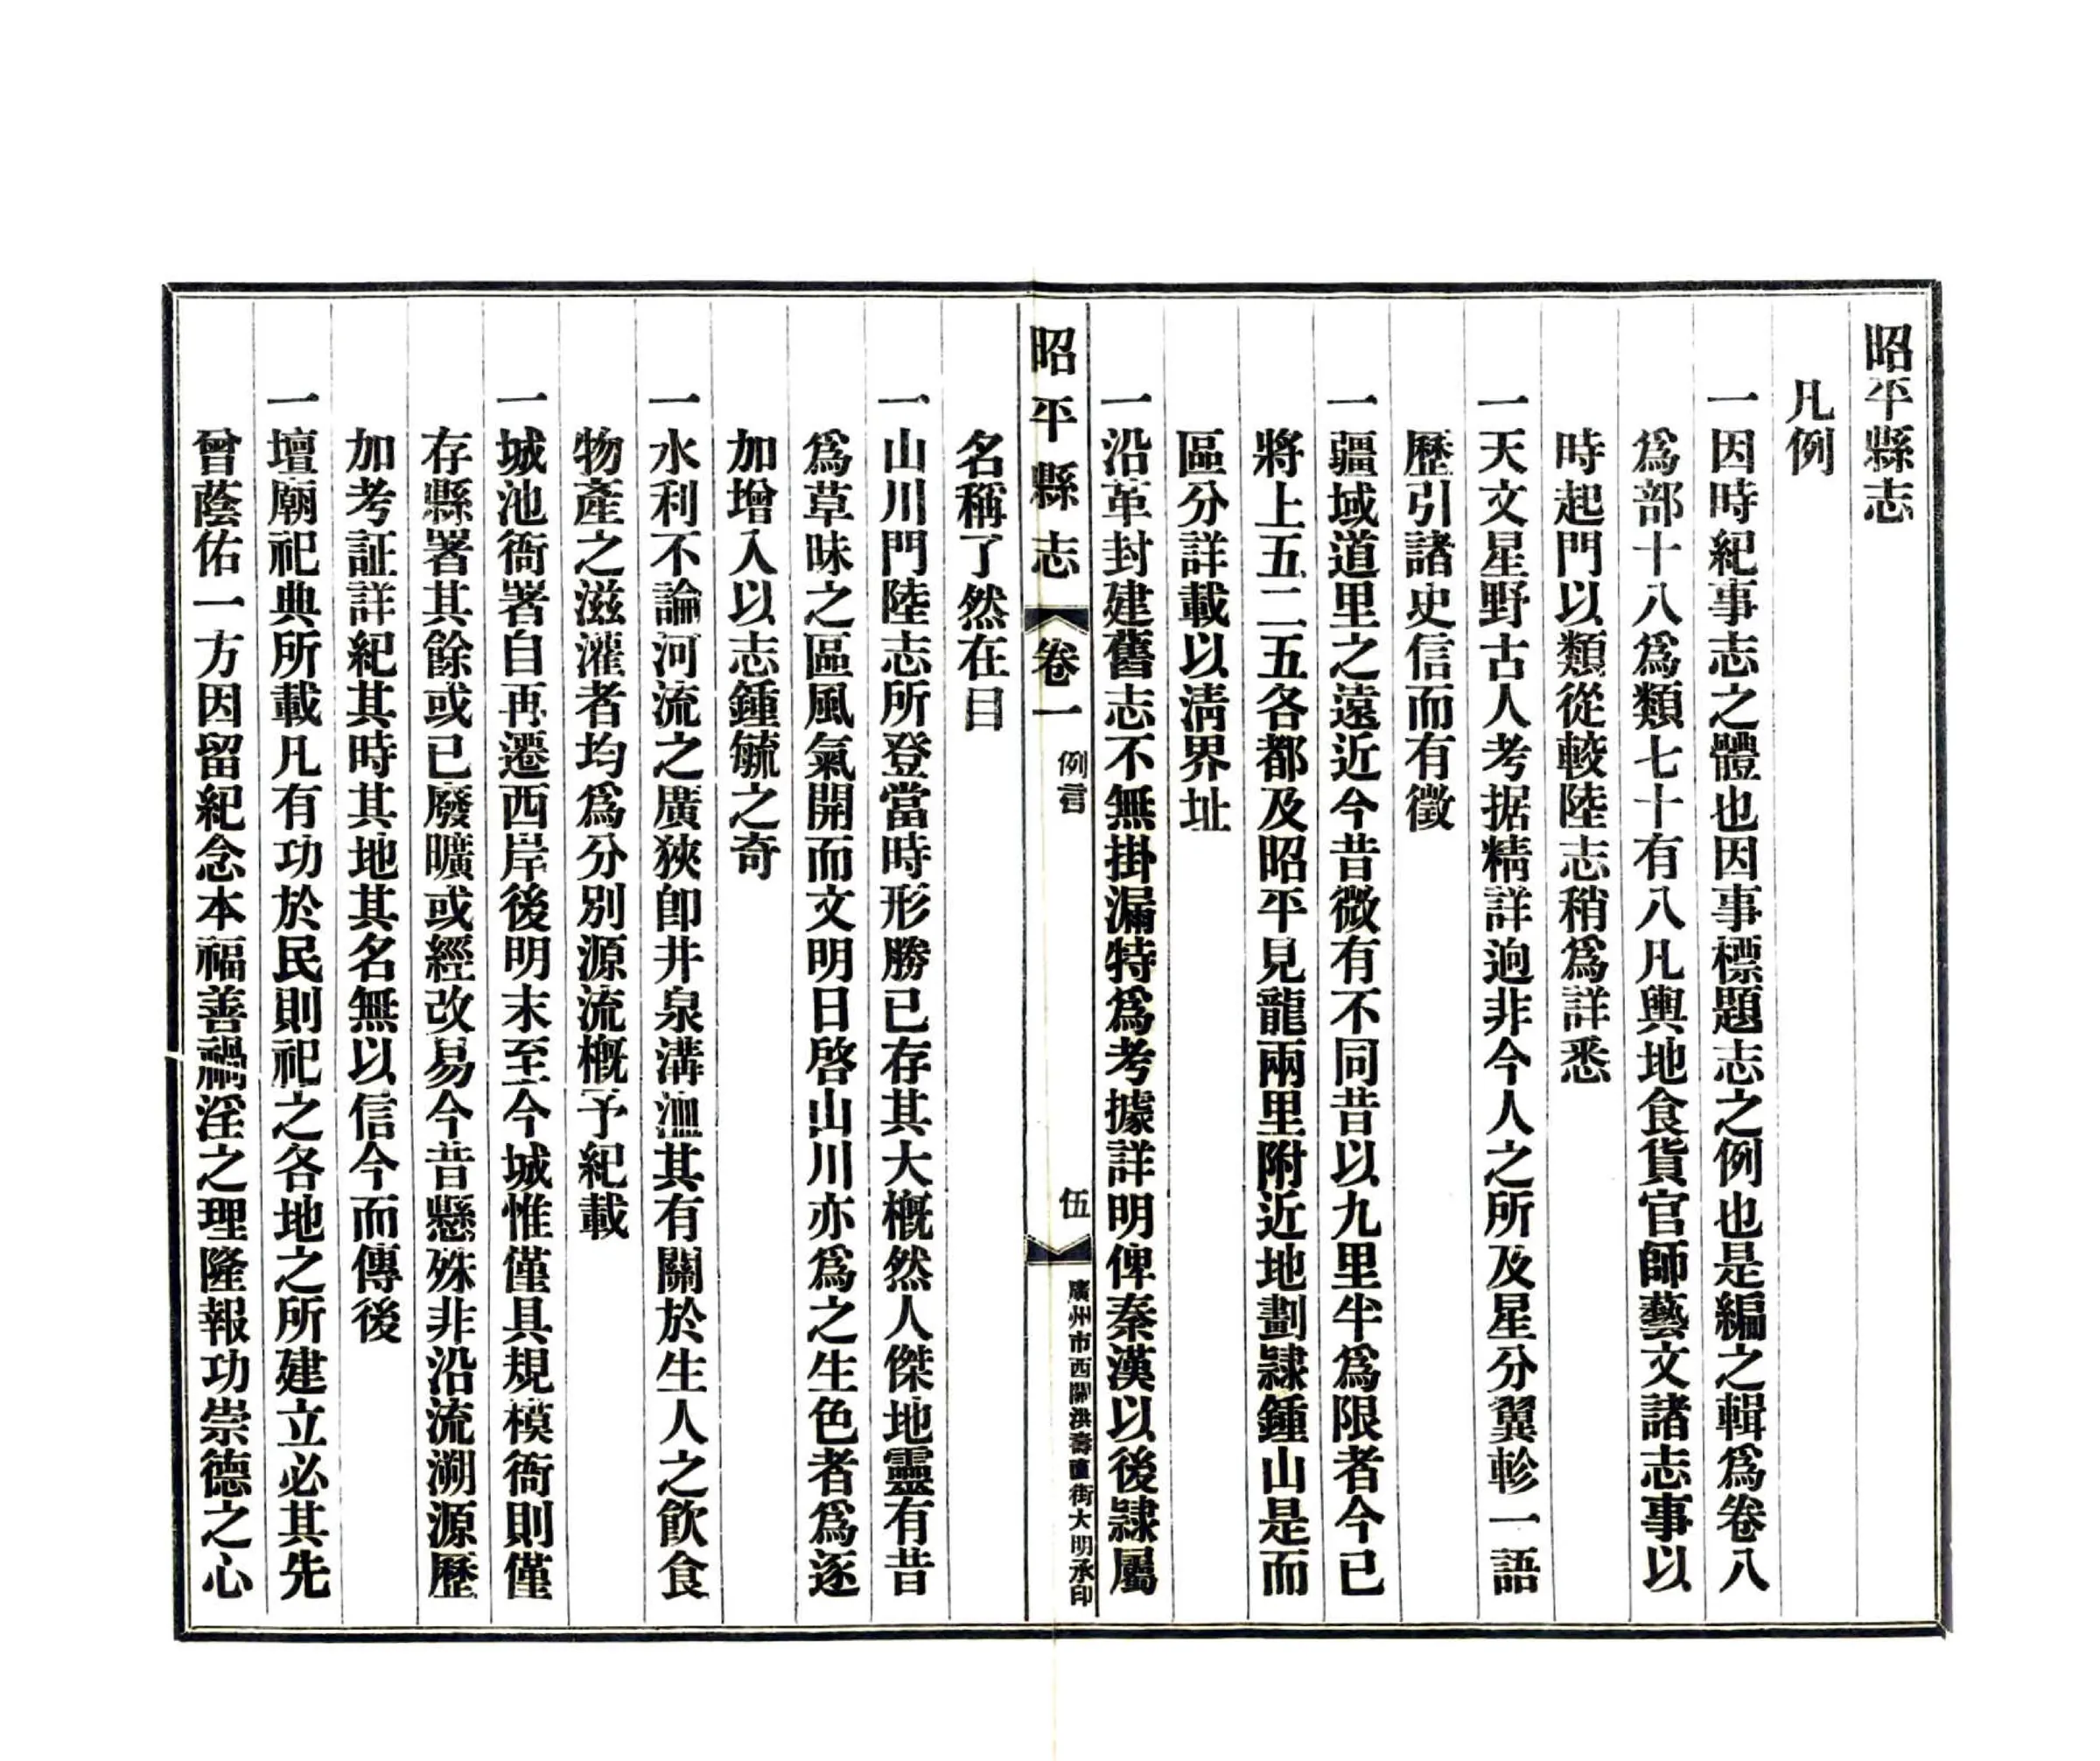 昭平縣志
凡例
一因時紀事志之體也因事標題志之例也是編之輯爲卷八
爲部十八爲類七十有八凡輿地食貨官師藝文諸志事以
時起門以類從較陸志稍爲詳悉
一天文星野古人考据精詳逈非今人之所及星分翼軫一語
歷引諸史信而有徵
一疆域道里之遠近今昔微有不同昔以九里半爲限者今已
將上五二五各都及昭平見龍兩里附近地劃隷鍾山是而
區分詳載以淸界址
一沿革封建舊志不無掛漏特爲考據詳明俾秦漢以後隷屬
昭平縣志 卷一 例言 伍 廣州市西關洪壽直街大明承印
名稱了然在目
一山川門陸志所登當時形勝已存其大槪然人傑地靈有昔
爲草昧之區風氣開而文明日啓山川亦爲之生色者爲逐
加增入以志鍾毓之奇
一水利不論河流之廣狹卽井泉溝洫其有關於生人之飮食
物產之滋灌者均爲分別源流槪予紀載
一城池衙署自再遷西岸後明末至今城惟僅具規模衙則僅
存縣署其餘或已廢曠或經改易今昔懸殊非沿流溯源歷
加考証詳紀其時其地其名無以信今而傳後
一壇廟祀典所載凡有功於民則祀之各地之所建立必其先
曾蔭佑一方因留紀念本福善禍淫之理隆報功崇德之心